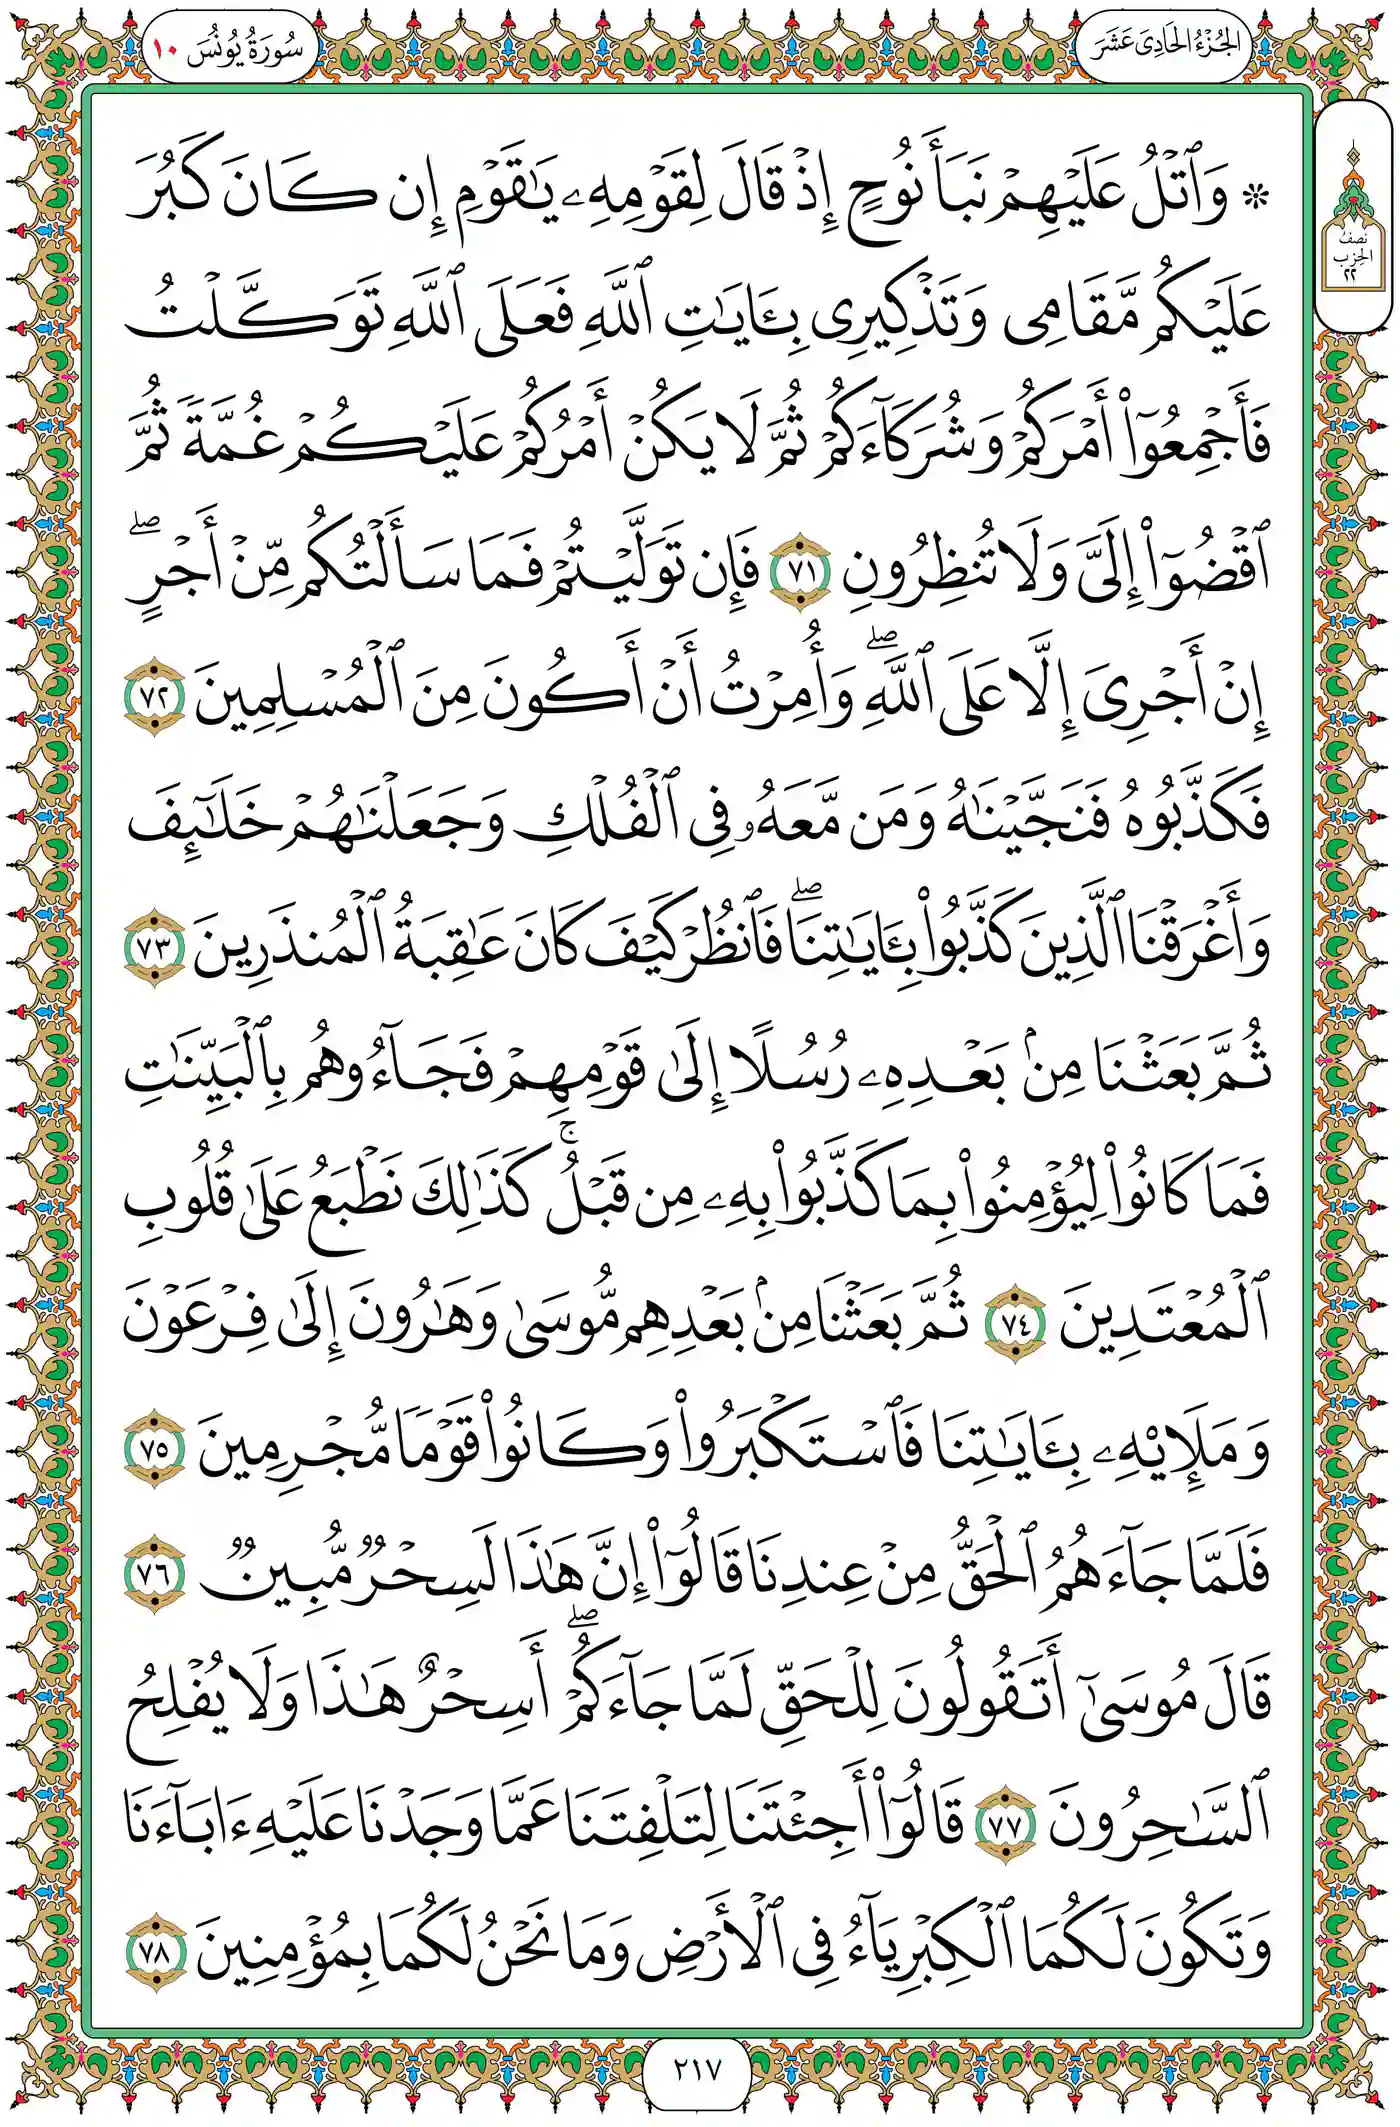 الجُزْءُ الحَادِىَ عَشَرَ
سُورَةُ يُونُسَ ١٠
نصف
الحزب
٢٢
۞ وَٱتْلُ عَلَيْهِمْ نَبَأَ نُوحٍ إِذْ قَالَ لِقَوْمِهِۦ يَٰقَوْمِ إِن كَانَ كَبُرَ
عَلَيْكُم مَّقَامِى وَتَذْكِيرِى بِـَٔايَٰتِ ٱللَّهِ فَعَلَى ٱللَّهِ تَوَكَّلْتُ
فَأَجْمِعُوٓا۟ أَمْرَكُمْ وَشُرَكَآءَكُمْ ثُمَّ لَا يَكُنْ أَمْرُكُمْ عَلَيْكُمْ غُمَّةً ثُمَّ
ٱقْضُوٓا۟ إِلَىَّ وَلَا تُنظِرُونِ ٧١ فَإِن تَوَلَّيْتُمْ فَمَا سَأَلْتُكُم مِّنْ أَجْرٍ ۖ
إِنْ أَجْرِىَ إِلَّا عَلَى ٱللَّهِ ۖ وَأُمِرْتُ أَنْ أَكُونَ مِنَ ٱلْمُسْلِمِينَ ٧٢
فَكَذَّبُوهُ فَنَجَّيْنَٰهُ وَمَن مَّعَهُۥ فِى ٱلْفُلْكِ وَجَعَلْنَٰهُمْ خَلَٰٓئِفَ
وَأَغْرَقْنَا ٱلَّذِينَ كَذَّبُوا۟ بِـَٔايَٰتِنَا ۖ فَٱنظُرْ كَيْفَ كَانَ عَٰقِبَةُ ٱلْمُنذَرِينَ ٧٣
ثُمَّ بَعَثْنَا مِنۢ بَعْدِهِۦ رُسُلًا إِلَىٰ قَوْمِهِمْ فَجَآءُوهُم بِٱلْبَيِّنَٰتِ
فَمَا كَانُوا۟ لِيُؤْمِنُوا۟ بِمَا كَذَّبُوا۟ بِهِۦ مِن قَبْلُ ۚ كَذَٰلِكَ نَطْبَعُ عَلَىٰ قُلُوبِ
ٱلْمُعْتَدِينَ ٧٤ ثُمَّ بَعَثْنَا مِنۢ بَعْدِهِم مُّوسَىٰ وَهَٰرُونَ إِلَىٰ فِرْعَوْنَ
وَمَلَإِي۟هِۦ بِـَٔايَٰتِنَا فَٱسْتَكْبَرُوا۟ وَكَانُوا۟ قَوْمًا مُّجْرِمِينَ ٧٥
فَلَمَّا جَآءَهُمُ ٱلْحَقُّ مِنْ عِندِنَا قَالُوٓا۟ إِنَّ هَٰذَا لَسِحْرٌ مُّبِينٌ ٧٦
قَالَ مُوسَىٰٓ أَتَقُولُونَ لِلْحَقِّ لَمَّا جَآءَكُمْ ۖ أَسِحْرٌ هَٰذَا وَلَا يُفْلِحُ
ٱلسَّٰحِرُونَ ٧٧ قَالُوٓا۟ أَجِئْتَنَا لِتَلْفِتَنَا عَمَّا وَجَدْنَا عَلَيْهِ ءَابَآءَنَا
وَتَكُونَ لَكُمَا ٱلْكِبْرِيَآءُ فِى ٱلْأَرْضِ وَمَا نَحْنُ لَكُمَا بِمُؤْمِنِينَ ٧٨
٢١٧